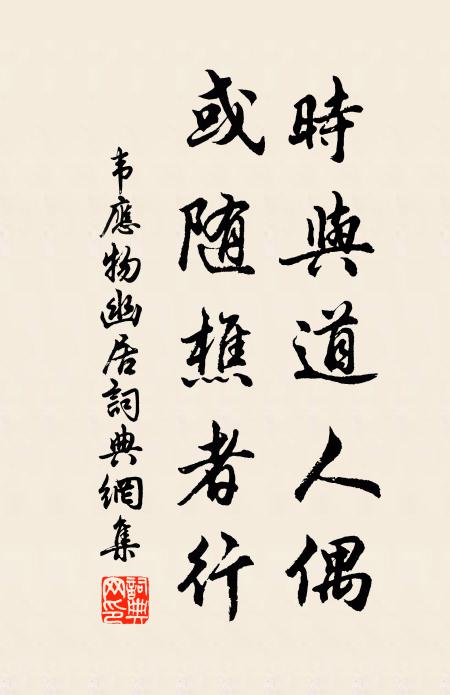 時與道人偶
或随樵者行
韦應物幽居詞典網集
詞典网印